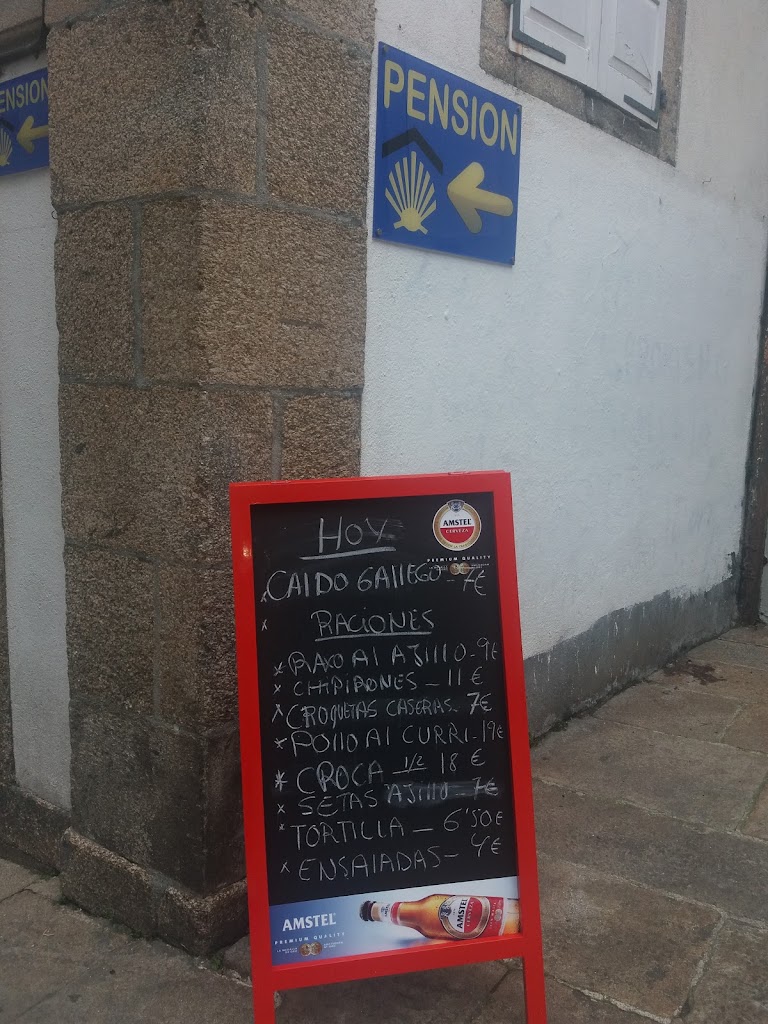 PENSION
ENSION
HOY
AMSTEL
CERVEZA
PREMIUM QUALITY
CALDO GALLEGO - 7€
RACIONES
RAXO AL AJILLO - 9€
CHIPIRONES - 11€
CROQUETAS CASERAS. 7€
POLLO AL CURRI - 19€
CROCA 1/2 18€
SETAS AJILLO - 7€
TORTILLA - 6'50€
ENSALADAS - 4€
AMSTEL
PREMIUM QUALITY
AMSTEL
CERVEZA